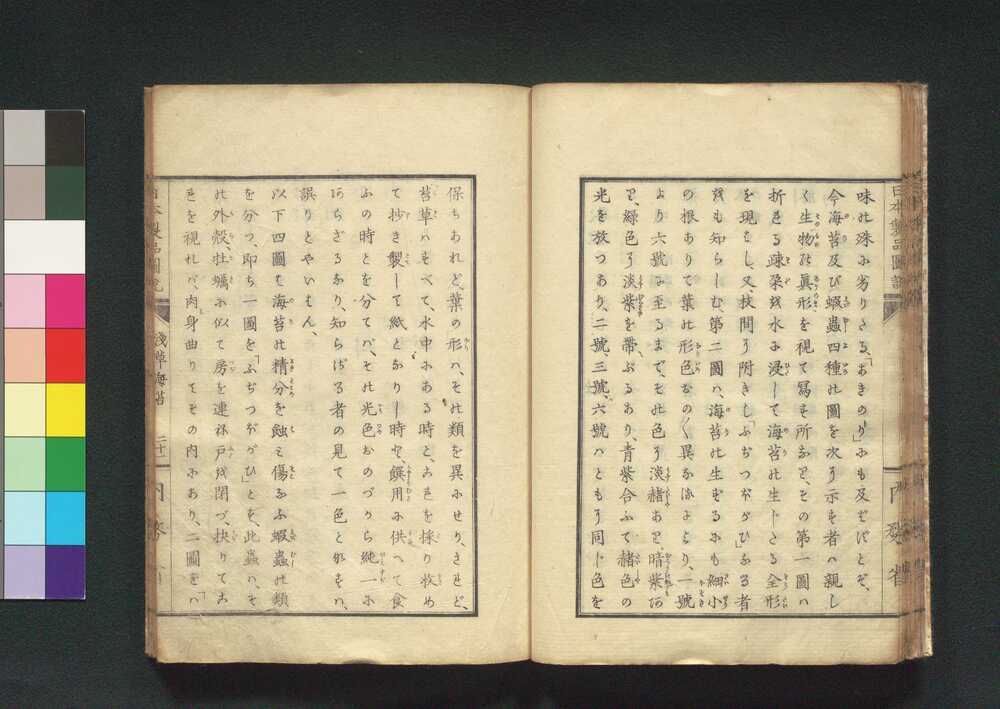 味ハ殊に劣りざる、「あきのり」にも及ばずとぞ、
今海苔及び蝦蟲四種の圖を次に示す者ハ親し
く生物の眞形を視て寫す所なり、その第一圖ハ
折たる疎朶を水に浸して海苔の生じたる全形
を現はし、又、枝間に附きし「ふぢつぼがひ」なる者
をも知らしむ、第二圖ハ、海苔の生ずるにも細小
の根ありて葉の形色おの〱異なるより、一號
より六號に至るまで、その色に淡赭あり、暗紫あ
り、緑色に淡紫を帶ぶるあり、青紫合ふて赭色の
光を放つあり、二號、三號、六號ハともに同じ色を
保ちあれど、葉の形ハ、その類を異にせり、されど、
苔草ハすべて、水中にある時と、これを採り收め
て抄き製して紙となりし時や、饌用に供へて食
ふの時とを分てバ、その光色おのづから純一に
あらざるなり、知らざる者の見て一色とおもハ、
誤りとやいはん、
以下四圖も海苔の精分を蝕み傷なふ蝦蟲の類
を分つ、即ち一圖を「ふぢつぼがひ」とす、此蟲ハ、そ
の外殻、牡蠣に似て房を連ね戸を閉づ、抉りてこ
れを視れバ、肉身曲りてその内にあり、二圖を「ハ
日本製品圖説
淺草海苔
二十一
内務省
日本製品圖説
内務省